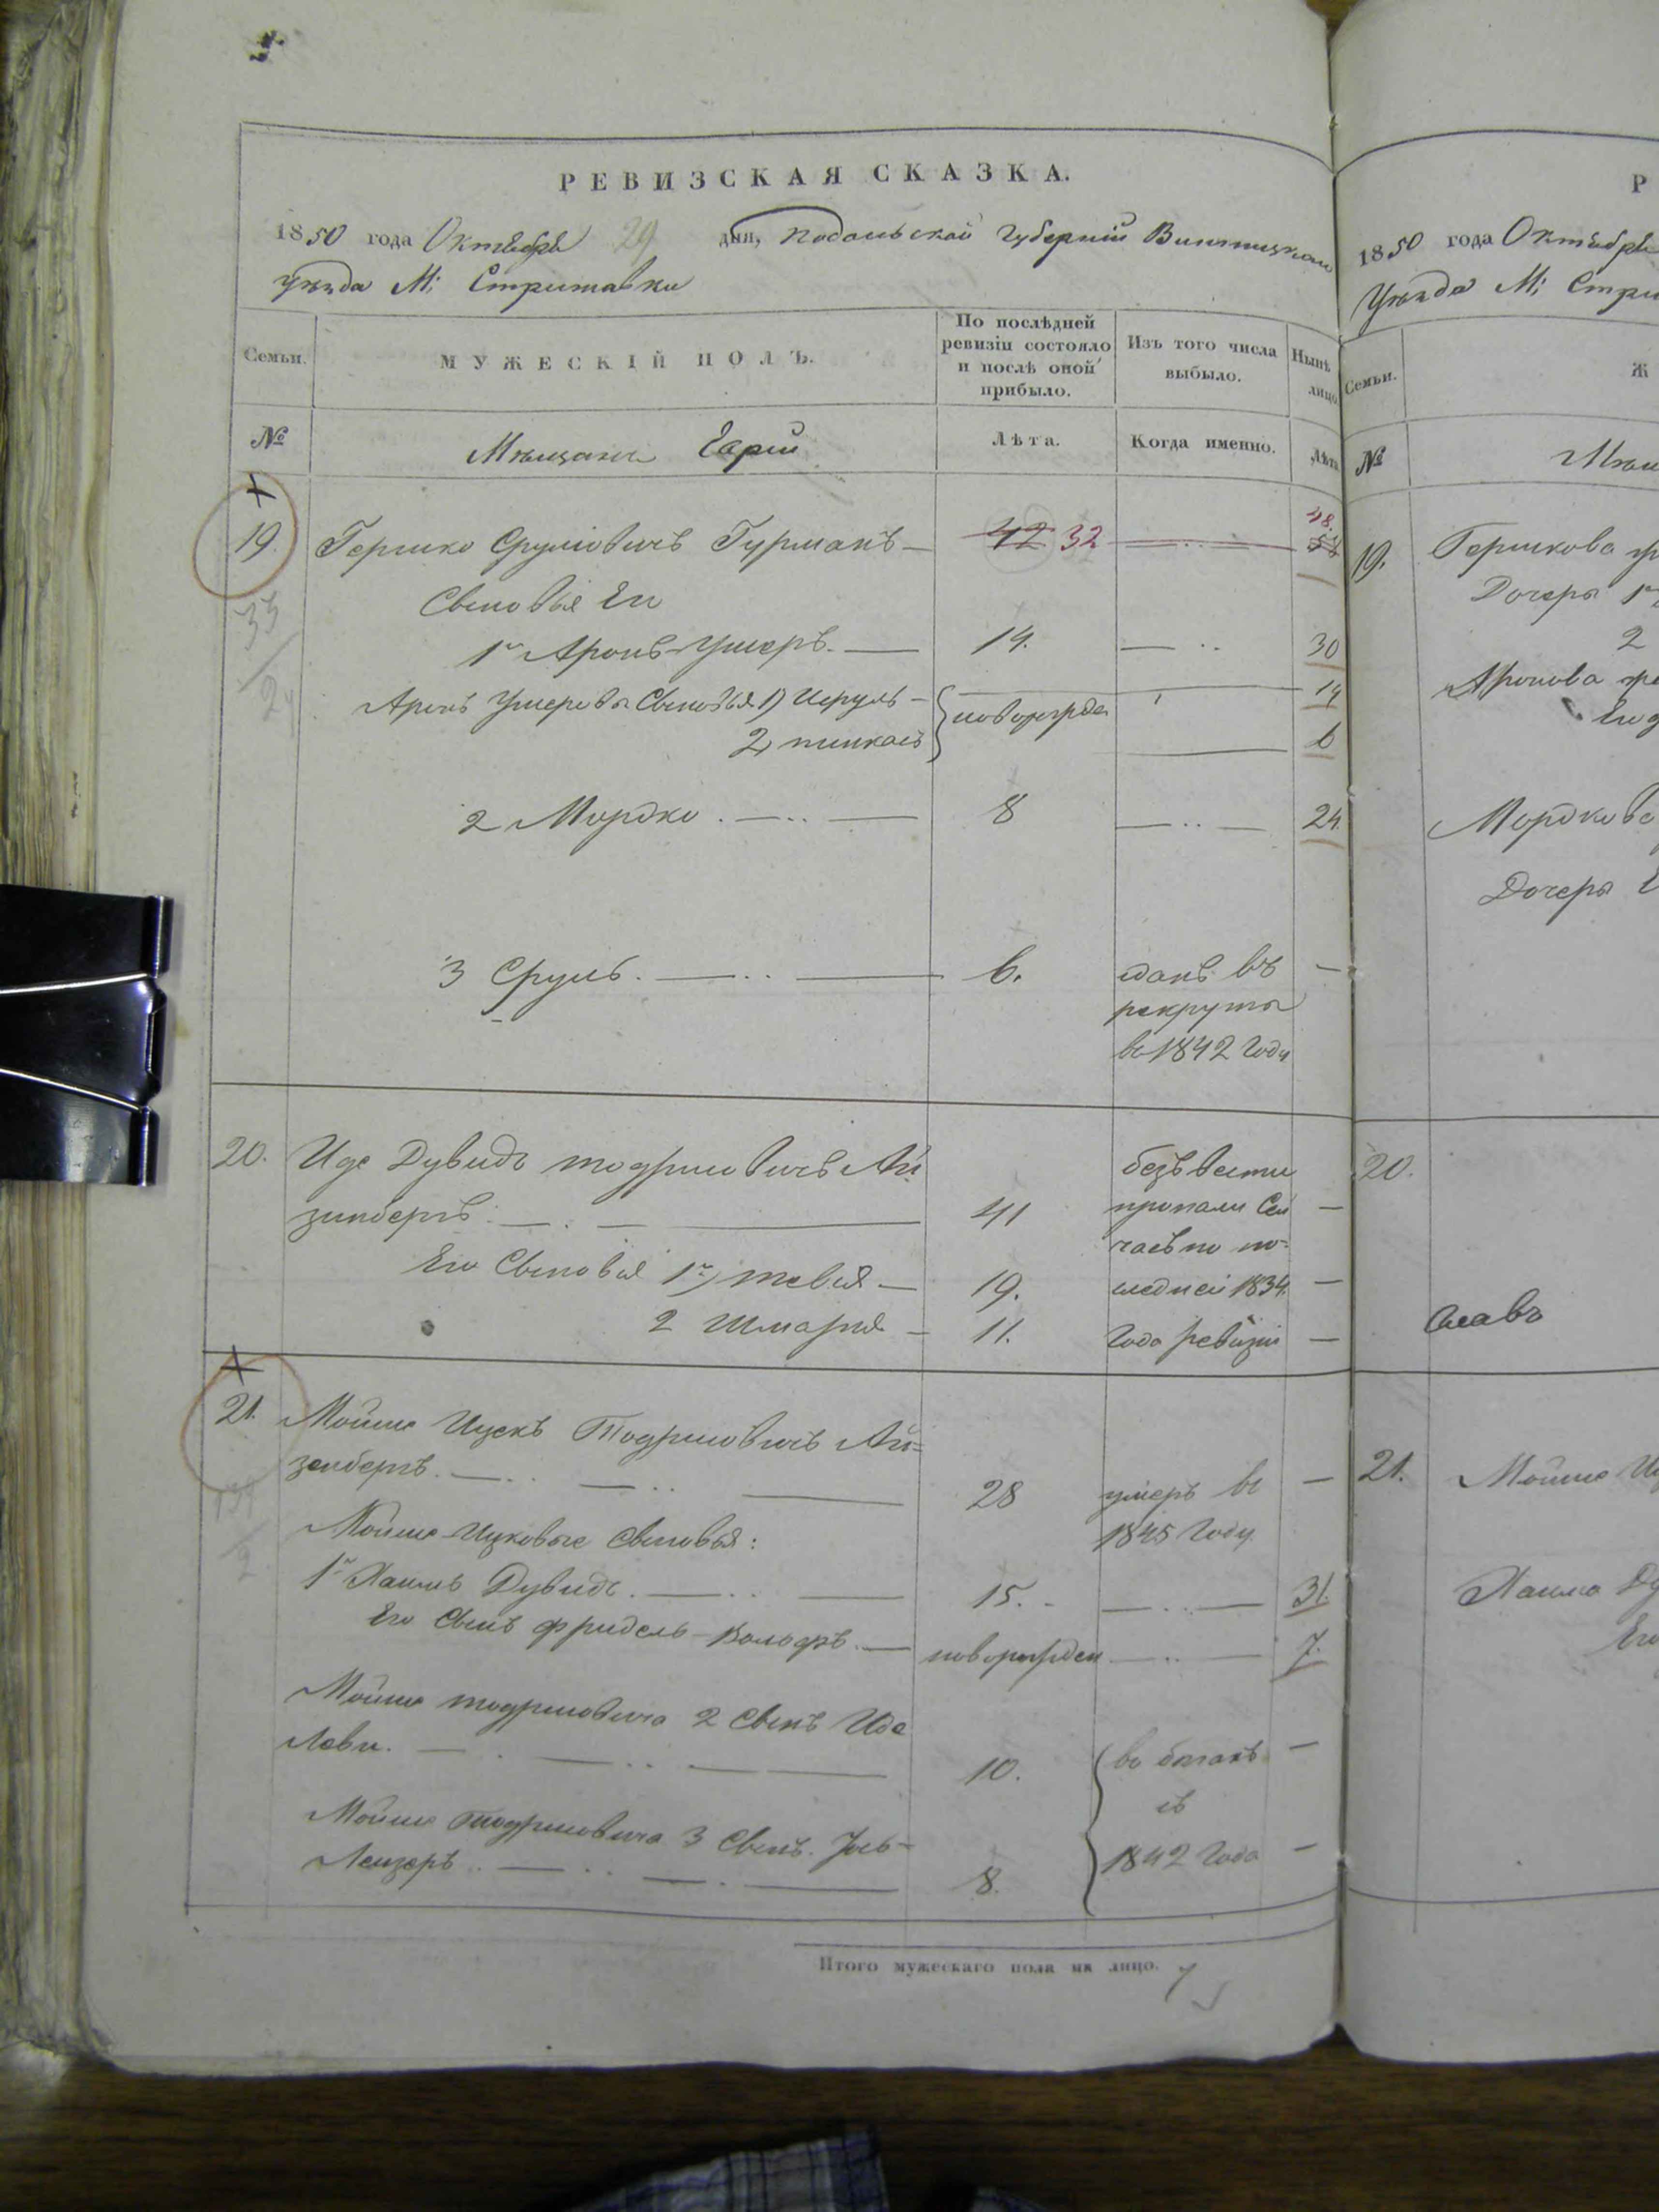 РЕВИЗСКАЯ СКАЗКА.
1850 года Октября 29 дня, Подольской Губерніи Винницкаго
уѣзда М: Стрижавки
Семьи.
МУЖЕСКІЙ ПОЛЪ.
По послѣдней ревизіи состояло и послѣ оной прибыло.
Изъ того числа выбыло.
Нынѣ лицо
№
Мѣщане Евреи
Лѣта.
Когда именно.
Лѣта
19. Гершко Срулiовичъ Гурманъ — 42 32 48.
Сыновья Его
1й Аронъ-Ушеръ. — 14. — 30
Аронъ Ушеровы Сыновья 1) Исруль — новорожде 14
2) пинкасъ 6
2 Мордко. — 8 — 24.
3 Сруль. — 6. сданъ въ —
рекруты
въ 1842 Году
33
24
20. Иде Дувидъ тодрисовичъ Ай
зинбергъ. — 41 —
безъ вести
пропали
последней 1834.
Года ревизіи
Его Сыновья 1й) тевья — 19. —
2 Шмария — 11. —
21. Мойше Ицекъ Тодрисовичъ Ай=
зенбергъ. — 28 умеръ въ —
1845 Году
Мойше Ицковые сыновья:
1й Хаимъ Дувидъ. — 15. — 31.
Его Сынъ фридель-Вольфъ. — новорожден — 7.
Мойше тодрисовича 2 сынъ Иде
Леви. — 10. —
въ бегахъ
съ
1842 Года
Мойше тодрисовича 3 Сынъ. Іось-
Лейзеръ. — 8. —
Итого мужескаго пола на лицо. 7
Р
1850 года Октября
Уѣзда М: Стри
Семьи.
Ж
№
Мѣщ
19. Гершкова
Дочеры
2
Аронова
Мордкова
Дочеры
20.
21. Мойше
Хаима
Его